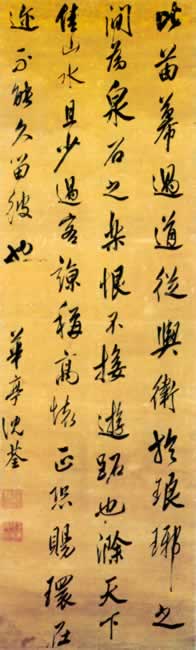 昨苗募過道從輿衛於琅琊之
間為泉石之樂恨不接遊躅也滁天下
佳山水且少過客諒稱高懷正恐賜環在
近不能久留彼也
華亭沈荃